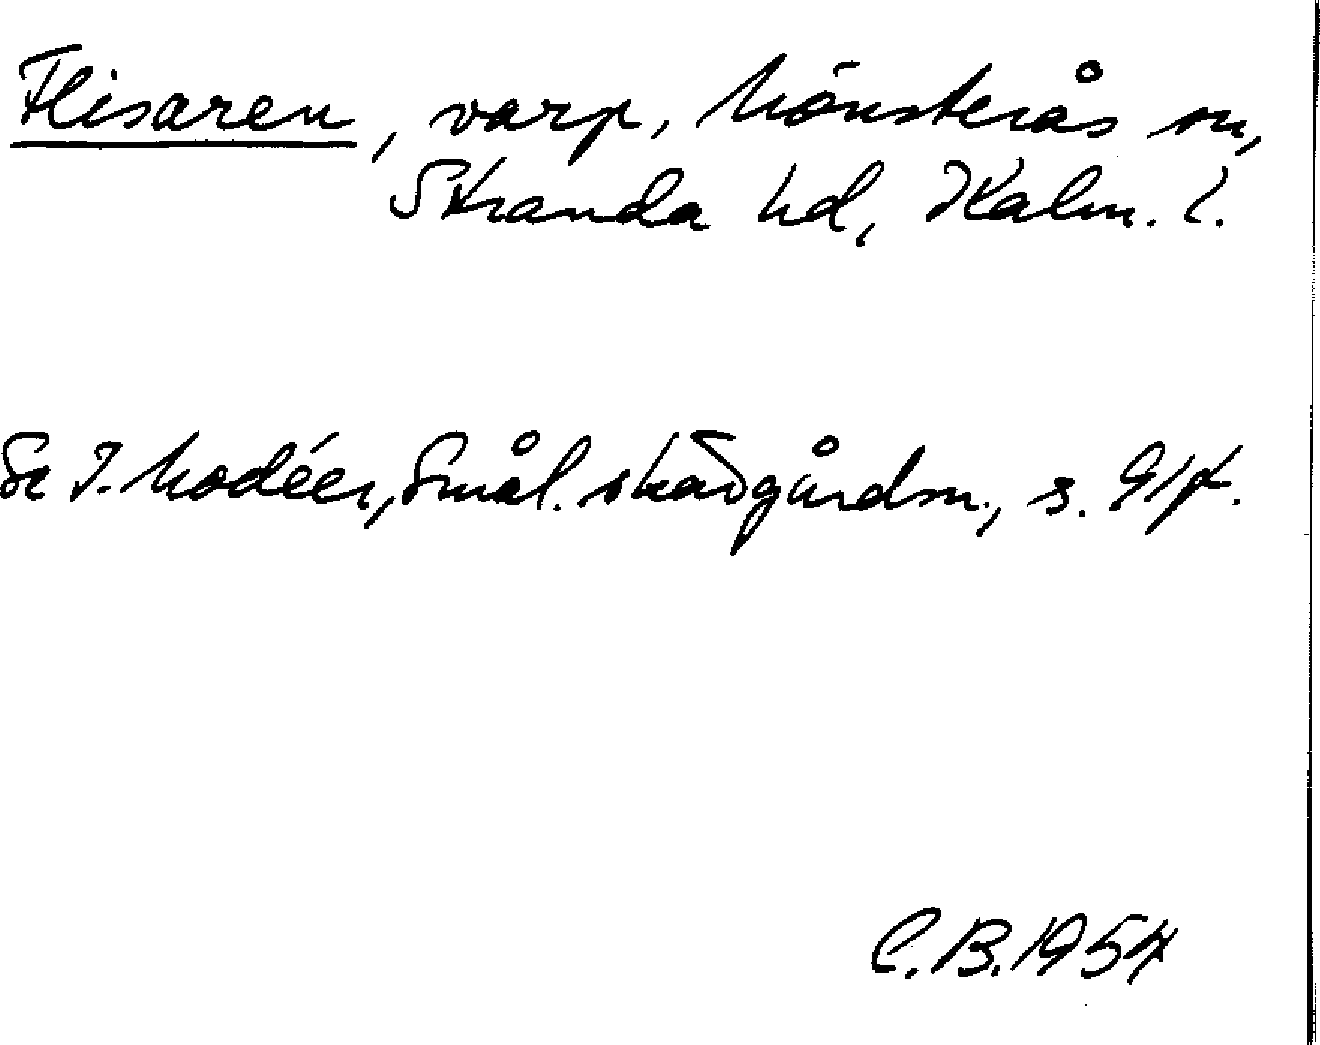 Flisaren, varp, Mönsterås sn,
Stranda hd, Kalm. l.
Se I. Modéer, Smål. skärgårdsn., s. 91 f.
C.B. 1954